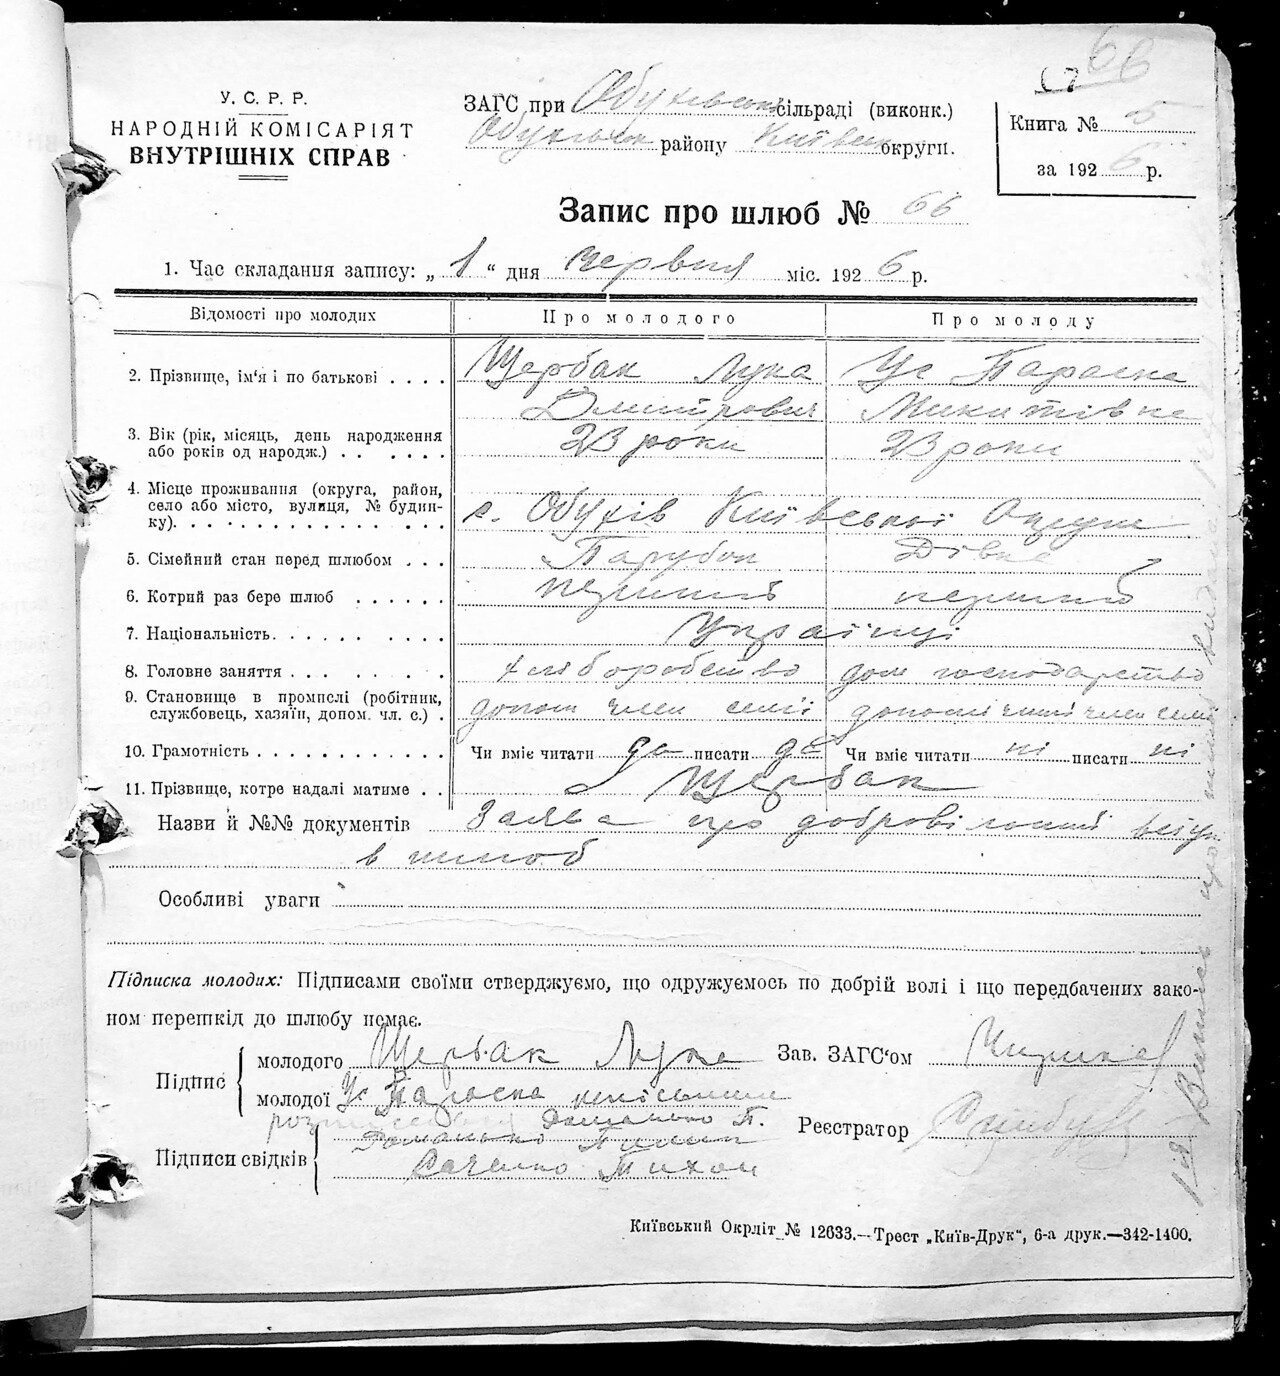 66
У. С. Р. Р.
НАРОДНІЙ КОМІСАРІЯТ
ВНУТРІШНІХ СПРАВ
ЗАГС при Обухівськ сільраді (виконк.)
району Київськ округи.
Книга № 5
за 1926 р.
Запис про шлюб № 66
1. Час складання запису: „ 1 “ дня червня міс. 1926 р.
Відомості про молодих Про молодого Про молоду
2. Прізвище, ім'я і по батькові . . . . Щербак Лука Ус Параска
Дмитрович Микитівна
3. Вік (рік, місяць, день народження 23 роки 23 роки
або років од народж.) . . . . . .
4. Місце проживання (округа, район,
село або місто, вулиця, № будин- с. Обухів Київської Округи
ку). . . . . . . . . . . . . . .
5. Сімейний стан перед шлюбом . . . Парубок Дівка
6. Котрий раз бере шлюб . . . . . . перший перший
7. Національність. . . . . . . . . . Українці
8. Головне заняття . . . . . . . . . хліборобство дом господарство
9. Становище в промислі (робітник,
службовець, хазяїн, допом. чл. с.) . допом член семії член семії
10. Грамотність . . . . . . . . . . . . Чи вміє читати да писати да Чи вміє читати ні писати ні
11. Прізвище, котре надалі матиме . . Щербак
Назви й №№ документів Заява про добровільний вступ
в шлюб
Особливі уваги
Підписка молодих: Підписами своїми стверджуємо, що одружуємось по добрій волі і що передбачених зако-
ном перешкід до шлюбу немає.
Підпис молодого Щербак Лука Зав. ЗАГС'ом
молодої Ус Параска неписьменна
Доманько П.
Підписи свідків Доманько Реєстратор
Саченко Тихон
Київський Окрліт № 12633.—Трест „Київ-Друк“, 6-а друк.—342-1400.